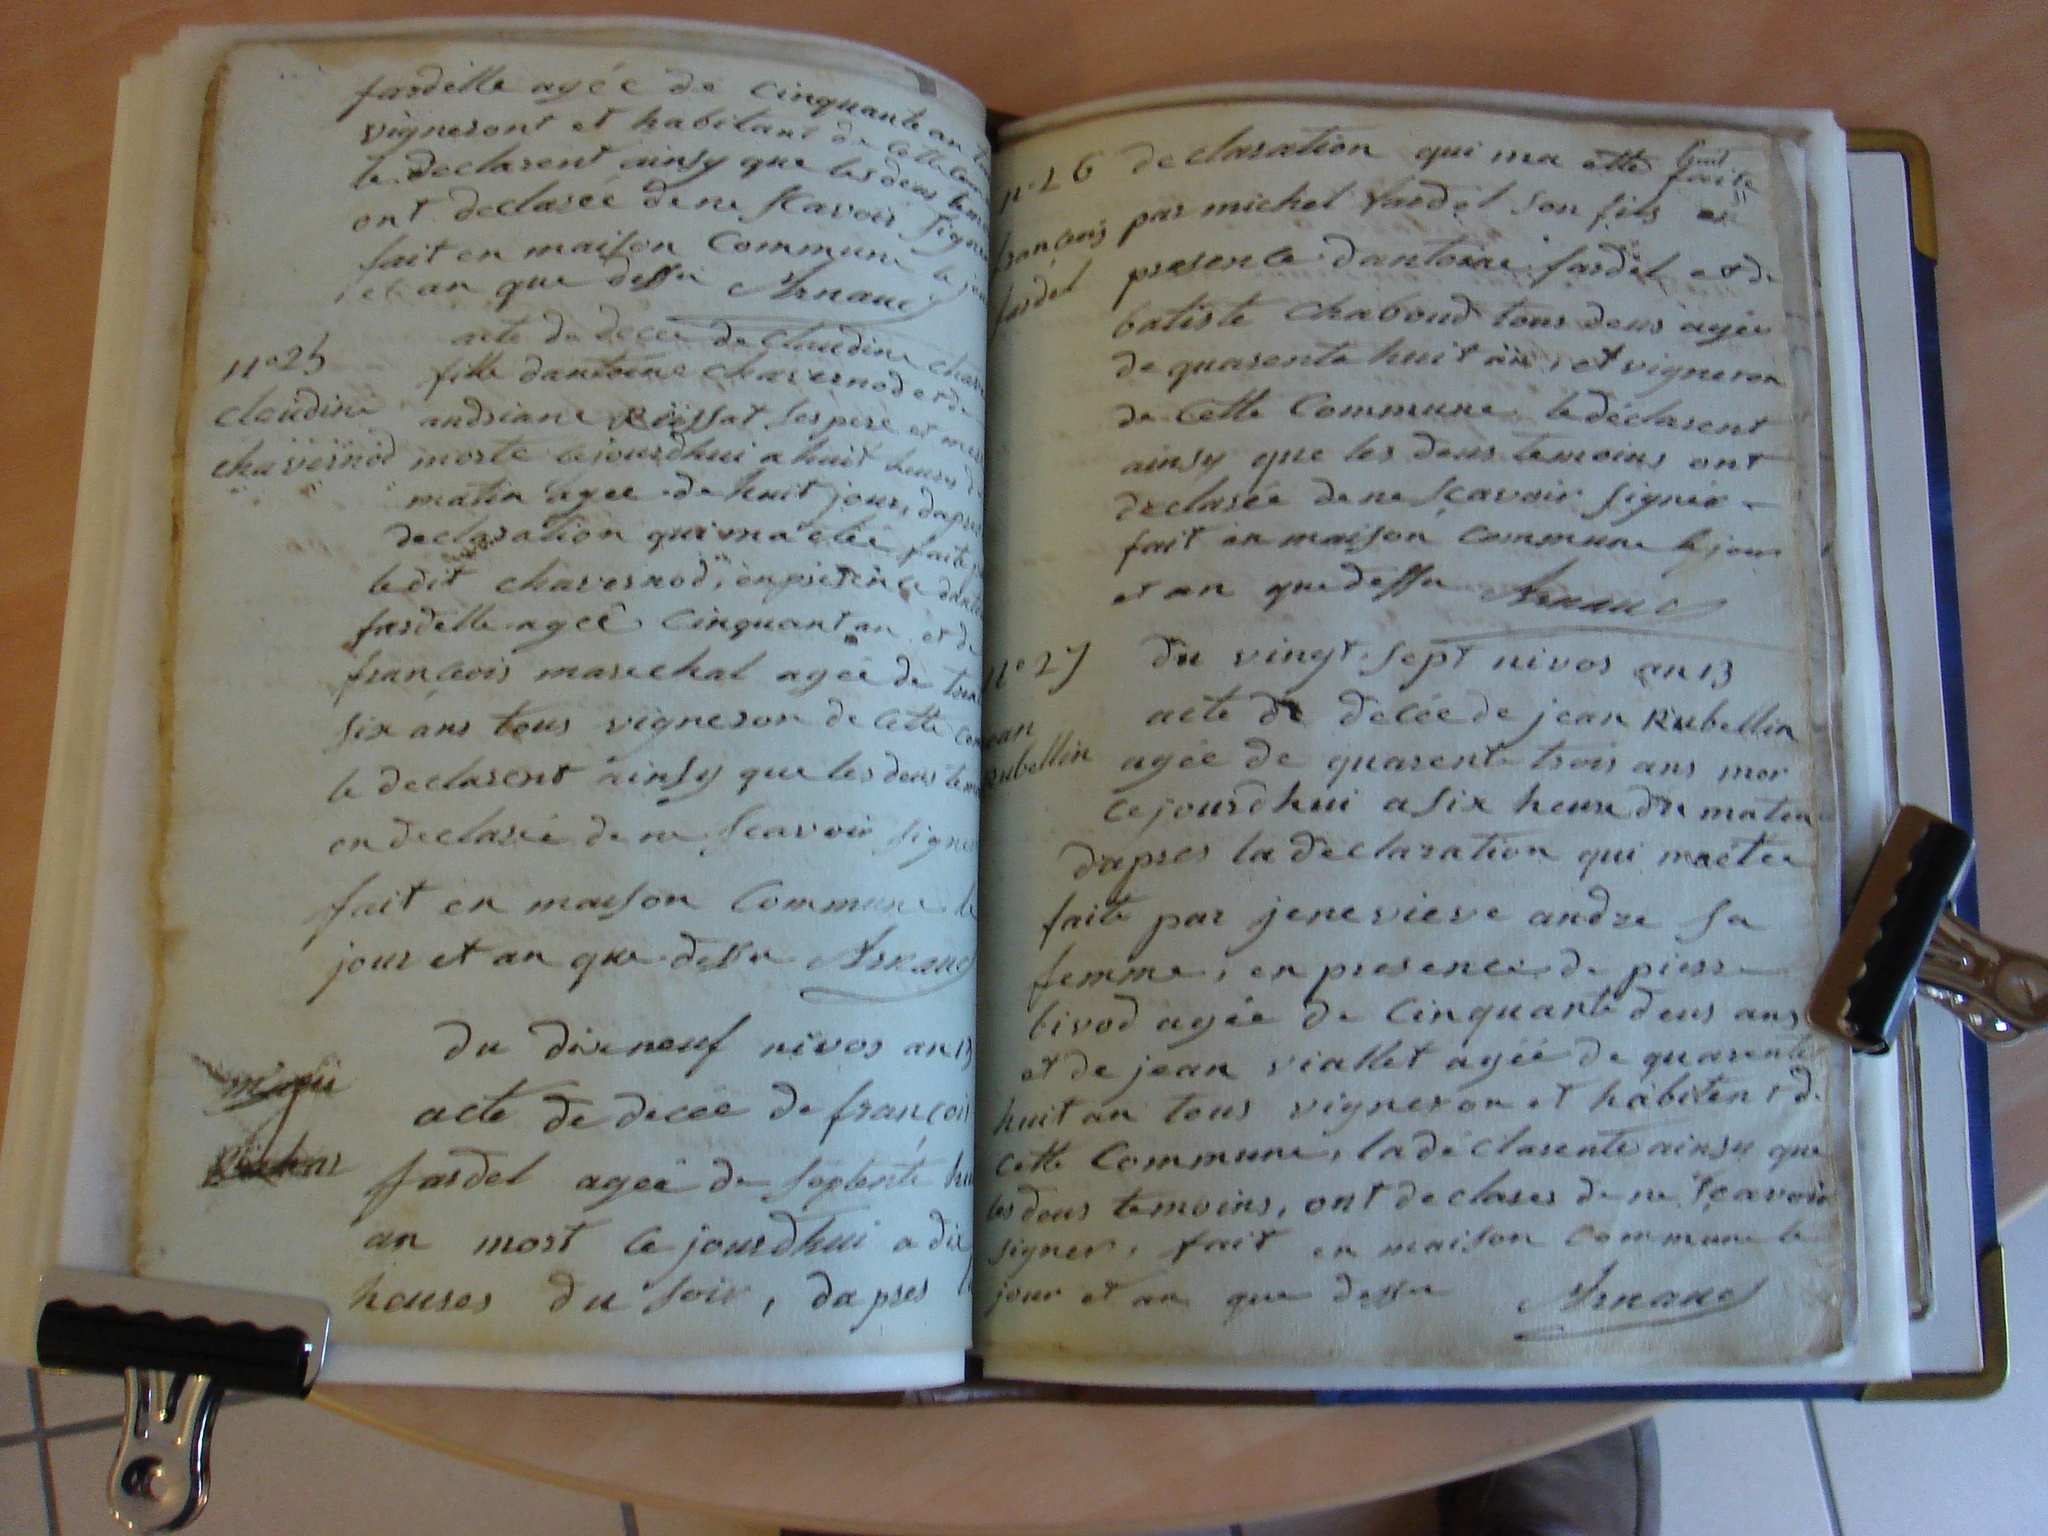 fardelle agée de cinquante an
vigneront et habitant de cette
le declarent ainsy que les deus tem
ont declarée dene scavoir signe
fait en maison commune le jou
et an que dessu Arnaud
n° 25
claudine
chavernod
acte de decée de claudine chave
fille dantoine chavernod et de
andriane Rossat ses pere et mere
morte cejourdhui a huit heures d
matin agée de huit jours, dapres
declaration qui ma etée faite p
ledit chavernod, en presence danto
fardelle agée cinquant an et de
françois marechal agée de tren
six ans tous vigneron de cette com
le declarent ainsy que les deus tem
on declarée de ne scavoir signer
fait en maison commune le
jour et an que dessu Arnaud
du dixneuf nivos an 13
acte de decée de françois
fardel agée de septente hu
an mort ce jourdhui a dix
heures du soir, dapres l
n° 26
françois
fardel
declaration qui ma etté faite
par michel fardel son fils en
presence dantoine fardel et de
batiste chaboud tous deus agée
de quarente huit an, et vigneron
de cette commune le déclarent
ainsy que les deus temoins ont
declarée dene scavoir signer -
fait en maison commune le jour
et an que dessu Arnaud
n° 27
jean
Rubellin
du vingt sept nivos an 13
acte de decée de jean Rubellin
agée de quarente trois ans mor
cejourdhui a six heure du matin
dapres la declaration qui ma etée
faite par jenevieve andre sa
femme, en presence de pierre
bivod agée de cinquante deus ans
et de jean viallet agée de quarente
huit an tous vigneron et habitent de
cette commune, la déclarente ainsy que
les deus temoins, ont declares de ne scavoir
signer, fait en maison commune le
jour et an que dessu Arnaud